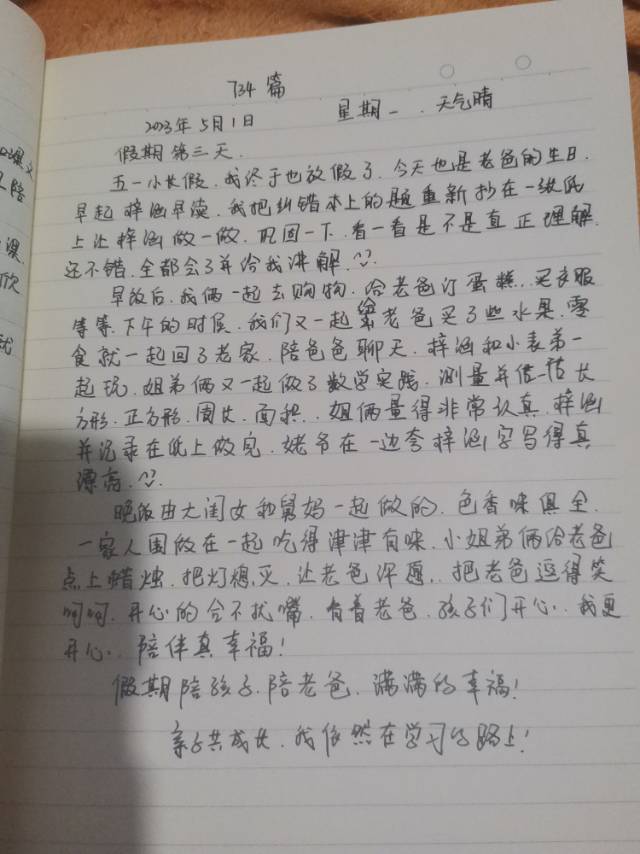 734篇
2023年5月1日 星期一 . 天气晴
假期第三天.
五一小长假, 我终于也放假了. 今天也是老爸的生日.
早起梓涵早读. 我把纠错本上的题重新抄在一张纸
上让梓涵做一做. 巩固一下. 看一看是不是真正理解.
还不错. 全都会了并给我讲解.
早饭后. 我俩一起去购物. 给老爸订蛋糕.. 买衣服
等等. 下午的时候. 我们又一起给老爸买了些水果. 零
食就一起回了老家. 陪爸爸聊天. 梓涵和小表弟一
起玩. 姐弟俩又一起做了数学实践. 测量并估一估长
方形. 正方形. 周长. 面积.. 姐俩量得非常认真. 梓涵
并记录在纸上做完. 姥爷在一边夸梓涵字写得真
漂亮.
晚饭由大闺女和舅妈一起做的. 色香味俱全.
一家人围做在一起吃得津津有味. 小姐弟俩给老爸
点上蜡烛. 把灯熄灭. 让老爸许愿.. 把老爸逗得笑
呵呵. 开心的合不拢嘴. 看着老爸. 孩子们开心. 我更
开心. 陪伴真幸福!
假期陪孩子. 陪老爸. 满满的幸福!
亲子共成长. 我依然在学习的路上!